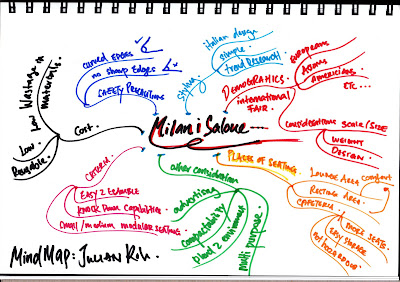 Milan i Salone
Cost.
Low Wastage in
materials.
Low.
Reusable.
curved EDGES
no sharp EDGES
SAFETY PRECAUTIONS
Styling
italian design
simple.
trend RESEARCH
DEMOGRAPHICS
international
FAIR.
EUROPEANS
ASIANS
AMERICANS
ETC...
considerations SCALE/SIZE
WEIGHT
DESIGN
PLACES OF SEATING.
LOUNGE AREA comfort
RESTING AREA.
CAFETERIA
MORE SEATS.
EASY STORAGE
not hazardous
other consideration
advertising
compactability
blend 2 environment
Multi purpose.
CRITERIA
EASY 2 EXAMABLE
KNOCK Down Capabilities
small/medium modular SEATING
MIND MAP: JULIAN KOH.